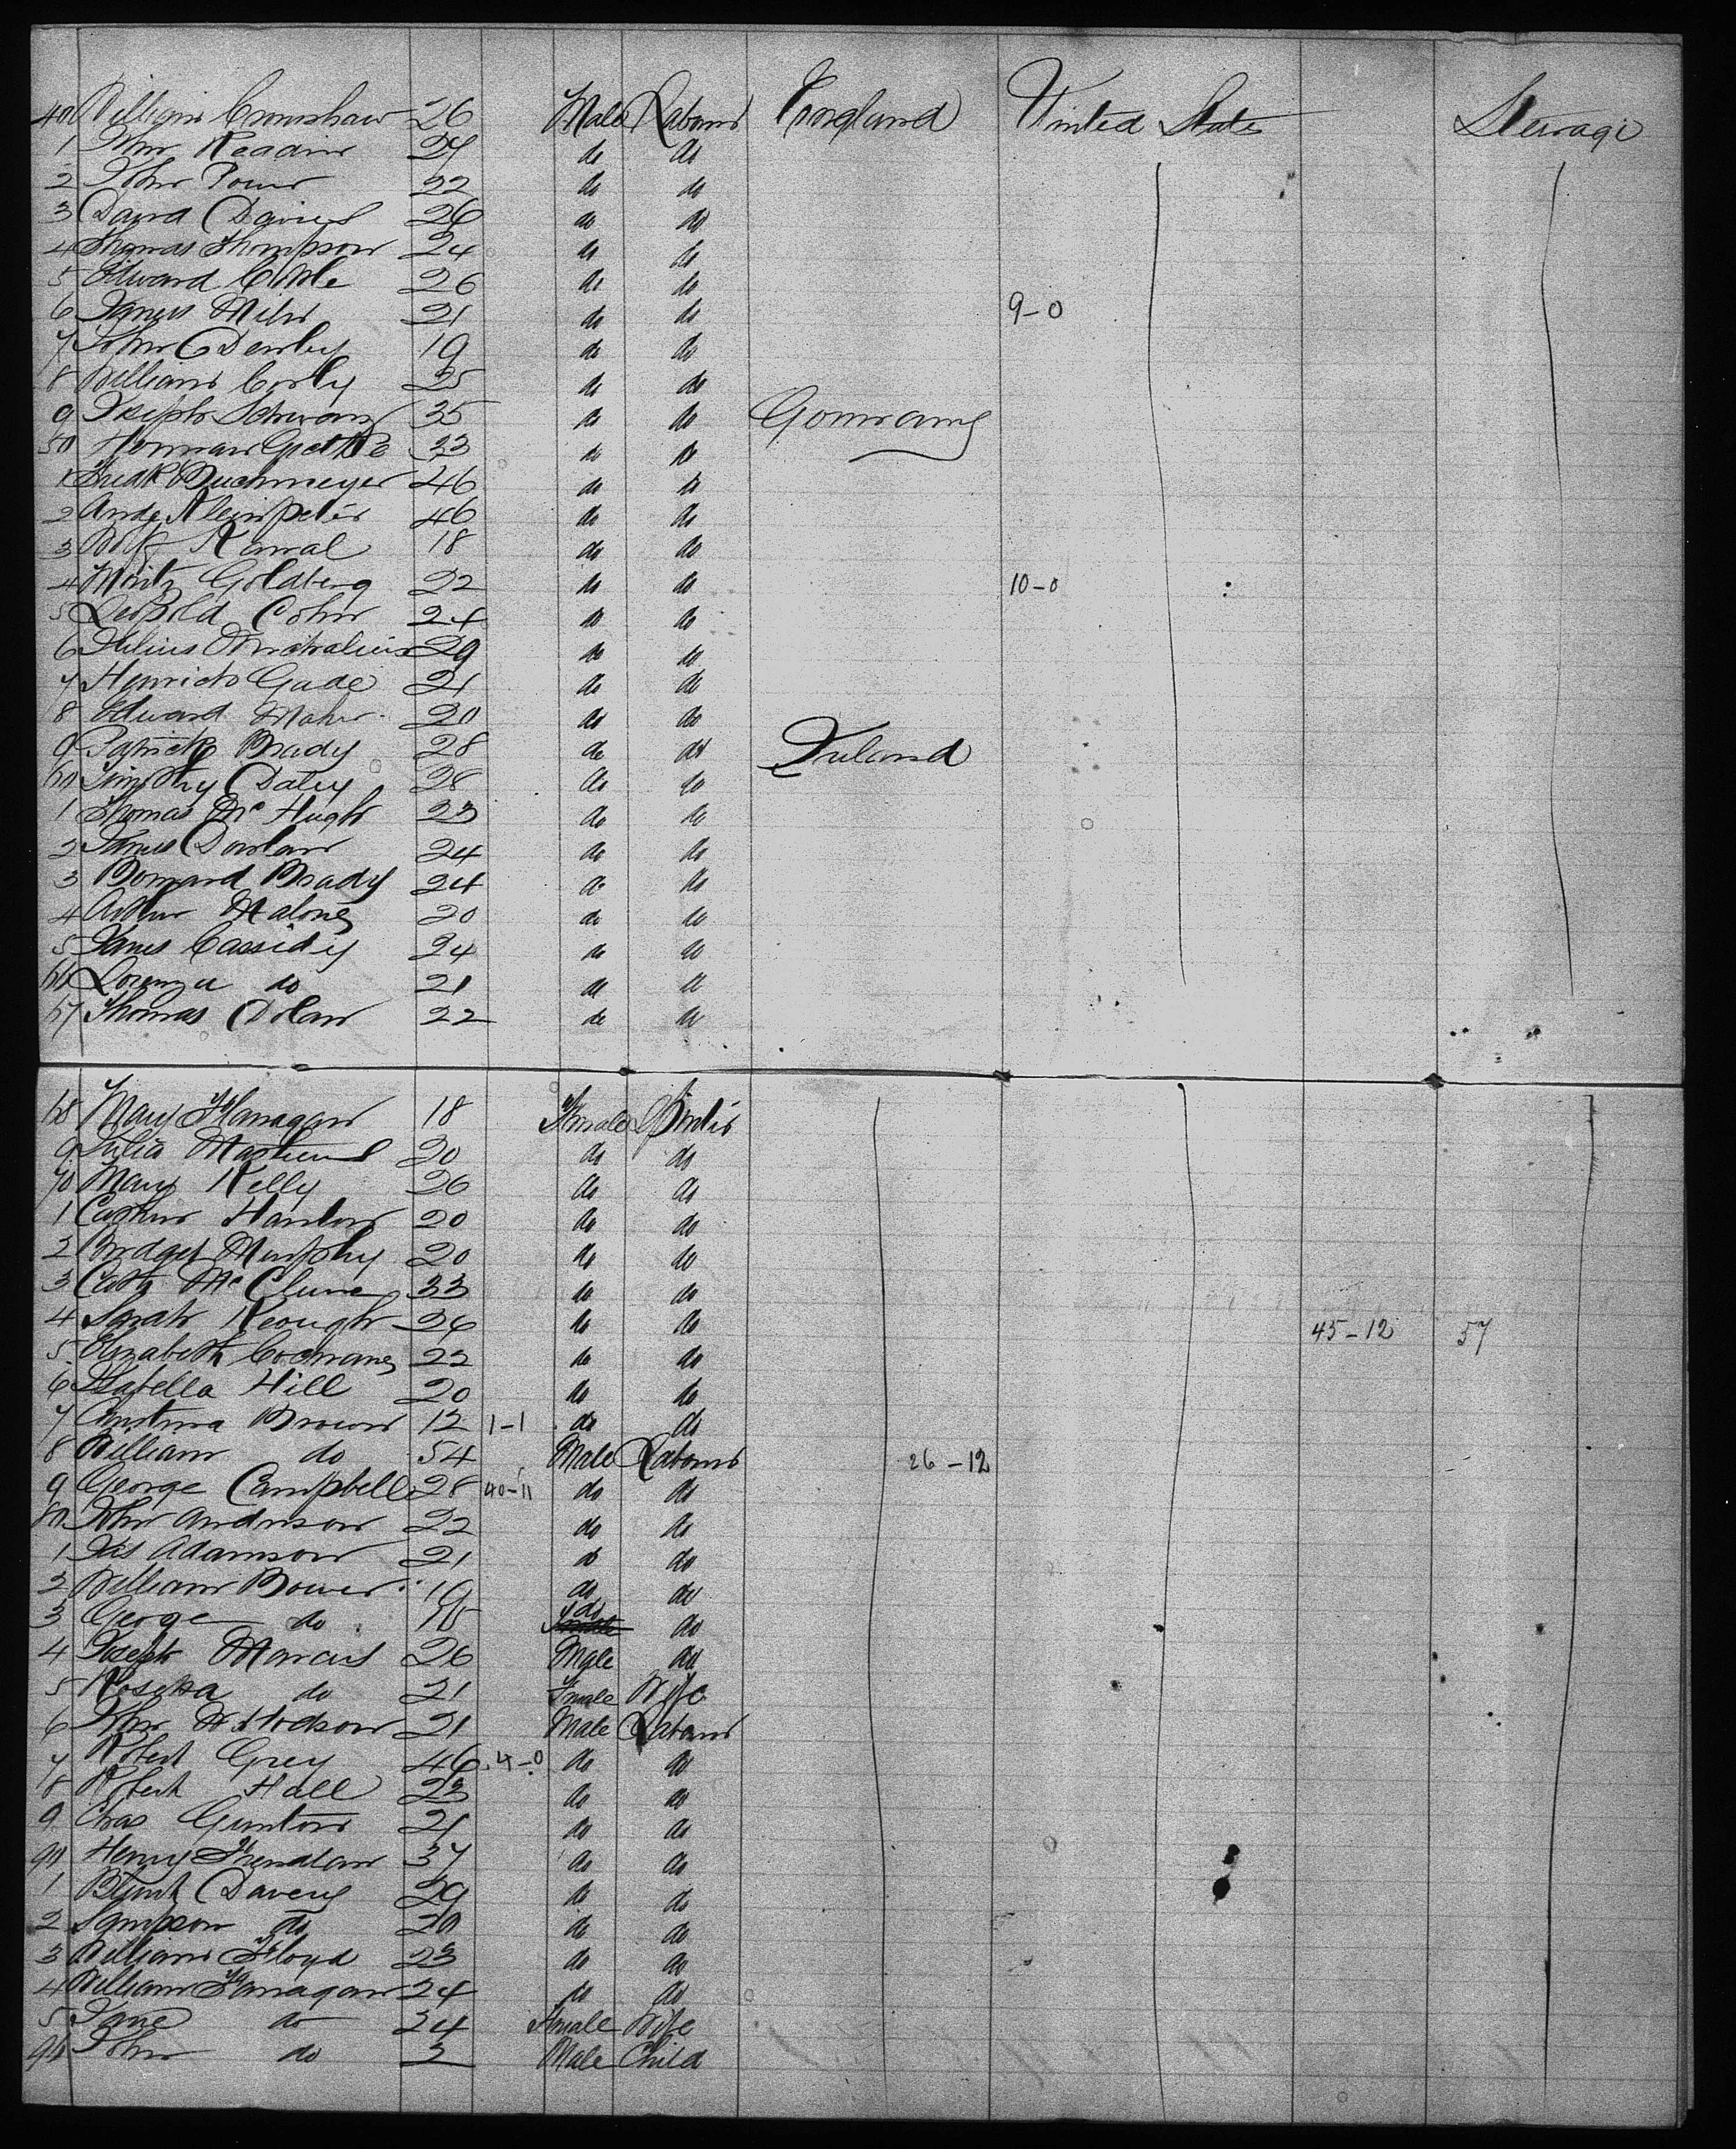 40 William Cronshaw 26 Male Labour England United States Steerage
1 John Readm 24 do do
2 John Power 22 do do
3 David Davies 26 do do
4 Thomas Thompson 24 do do
5 Edward Coyle 26 do do
6 James Miln 21 do do 9-0
7 John Denby 19 do do
8 William Corly 25 do do
9 Joseph Schwarz 35 do do Germany
50 Herman 33 do do
1 Fredk Buchmeyer 46 do do
2 Andr Kleinpeter 46 do do
3 Kamal 18 do do
4 Moritz Goldberg 22 do do 10-0
5 Leopold Cohn 24 do do
6 Julius 29 do do
7 Henrich Gade 21 do do
8 Edward Maher 20 do do
9 Patrick Brady 28 do do Ireland
60 Timothy Daley 28 do do
1 Thomas Mc Hugh 23 do do
2 James Dowlan 24 do do
3 Bernard Brady 24 do do
4 Arthur Malone 20 do do
5 James Cassidy 24 do do
66 Lorenza do 21 do do
67 Thomas Dolan 22 do do
68 Mary Flanagan 18 Female
9 Julia Mathews 20 do do
70 Mary Kelly 26 do do
1 Cathrin Hanlon 20 do do
2 Bridget Murphy 20 do do
3 Cath Mc Clune 33 do do
4 Sarah Keough 26 do do 45-12 57
5 Elizabeth Cochrane 22 do do
6 Isabella Hill 20 do do
7 Christina Brown 12 1-1 do do
8 William do 54 Male Labour 26-12
9 George Campbell 28 40-11 do do
80 John Anderson 22 do do
1 Jas Adamson 21 do do
2 William Bower 19 do do
3 George do 15 do do
4 Joseph Marcus 26 Male do
5 Rosetta do 21 Female Wife
6 John W. Hodson 21 Male Labour
7 Robert Grey 46 4-0 do do
8 Robert Hall 23 do do
9 Chas Gunton 21 do do
90 Henry 37 do do
1 Blunt Davey 29 do do
2 Sampson do 20 do do
3 William Floyd 23 do do
4 William Flanagan 24 do do
5 Jane do 24 Female Wife
96 John do 3 Male Child